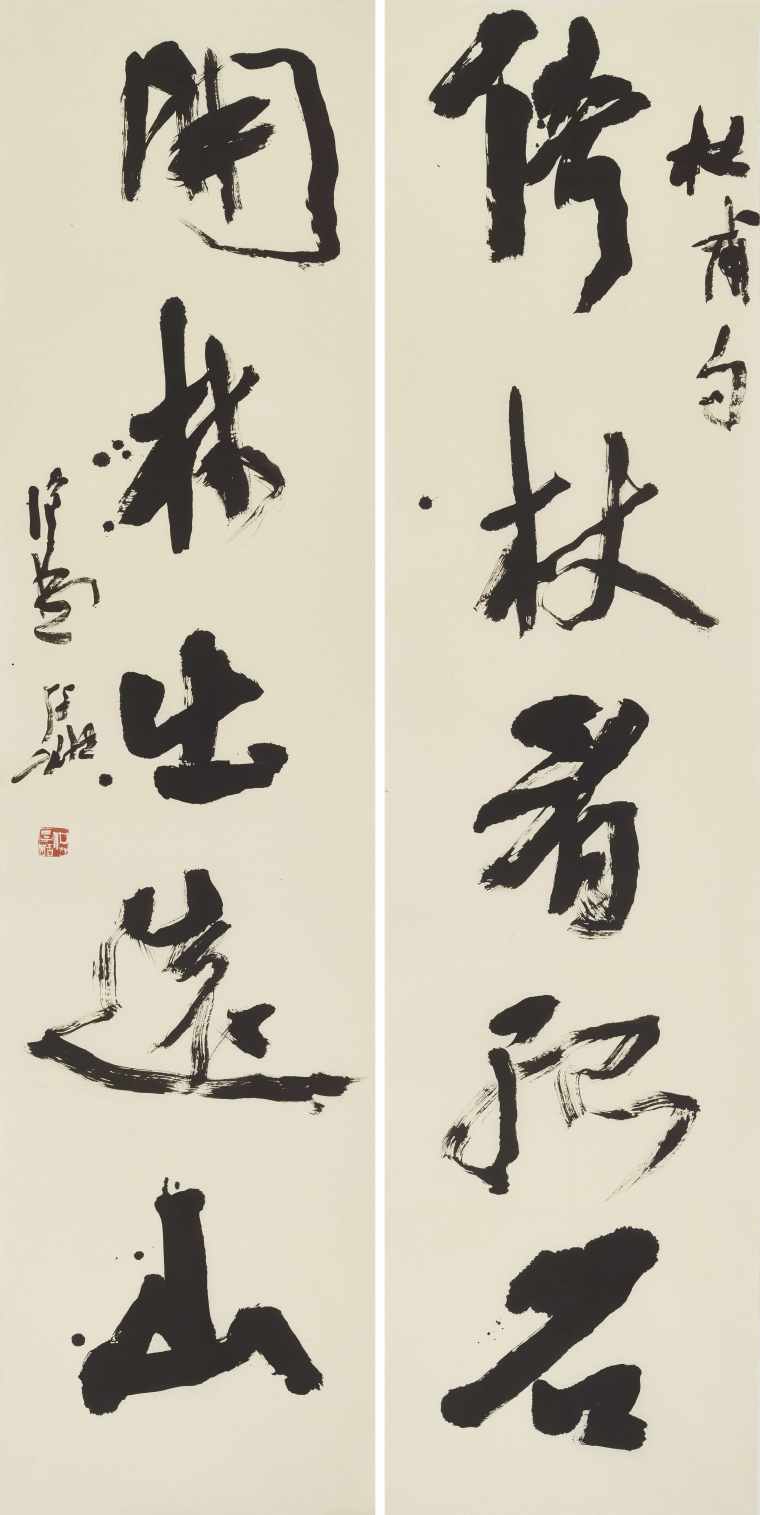 杜甫句
倚杖看孤石
開林出遠山